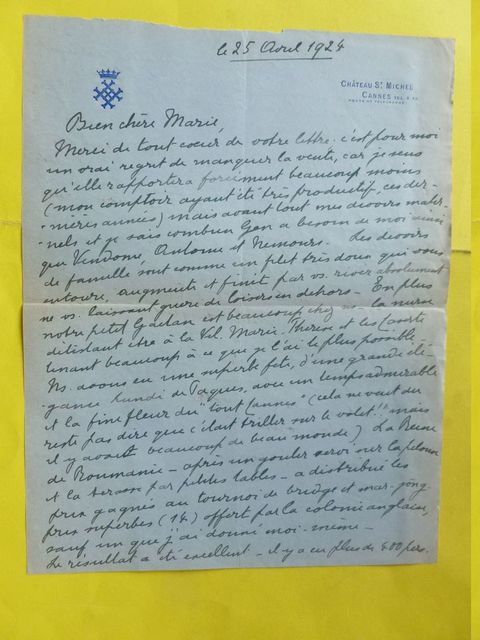 le 25 Avril 1924
CHÂTEAU St MICHEL
CANNES TÉL. 
POSTE ET TÉLÉGRAPHE
Bien chère Marie,
Merci de tout coeur de votre lettre. c'est pour moi
un vrai regret de manquer la vente, car je sens
qu'elle rapportera forcément beaucoup moins
(mon comptoir ayant été très productif, ces der-
nières années) mais avant tout mes devoirs mater-
nels et je sais combien Gen a besoin de moi ainsi
que Vendome, Antoine et Nemours. Les devoirs
de famille sont comme un filet très doux qui vous
entoure, augmente et finit par vs. river absolument
ne vs. laissant guère de loisirs en dehors. En plus
notre petit Gaëtan est beaucoup chez la nurse
détestant être à la Vil. Marie-Thérèse et les Caserte
tenant beaucoup à ce que je l'ai le plus possible.
Ns. avons eu une superbe fête, d'une grande élé-
gance Lundi de Paques, avec un temps admirable
et la fine fleur du "tout Cannes" (cela ne veut du
reste pas dire que c'était triller sur le volet!! mais
il y avait beaucoup de beau monde) La Reine
de Roumanie - après un gouter servi sur la pelouse
et la terasse par petites tables - a distribué les
prix gagnés au tournoi de bridge et mar-jong
prix superbes (14) offert par la colonie anglaise,
sauf un que j'ai donné moi-même -
Le résultat a été excellent - il y a eu plus de 400 pers.